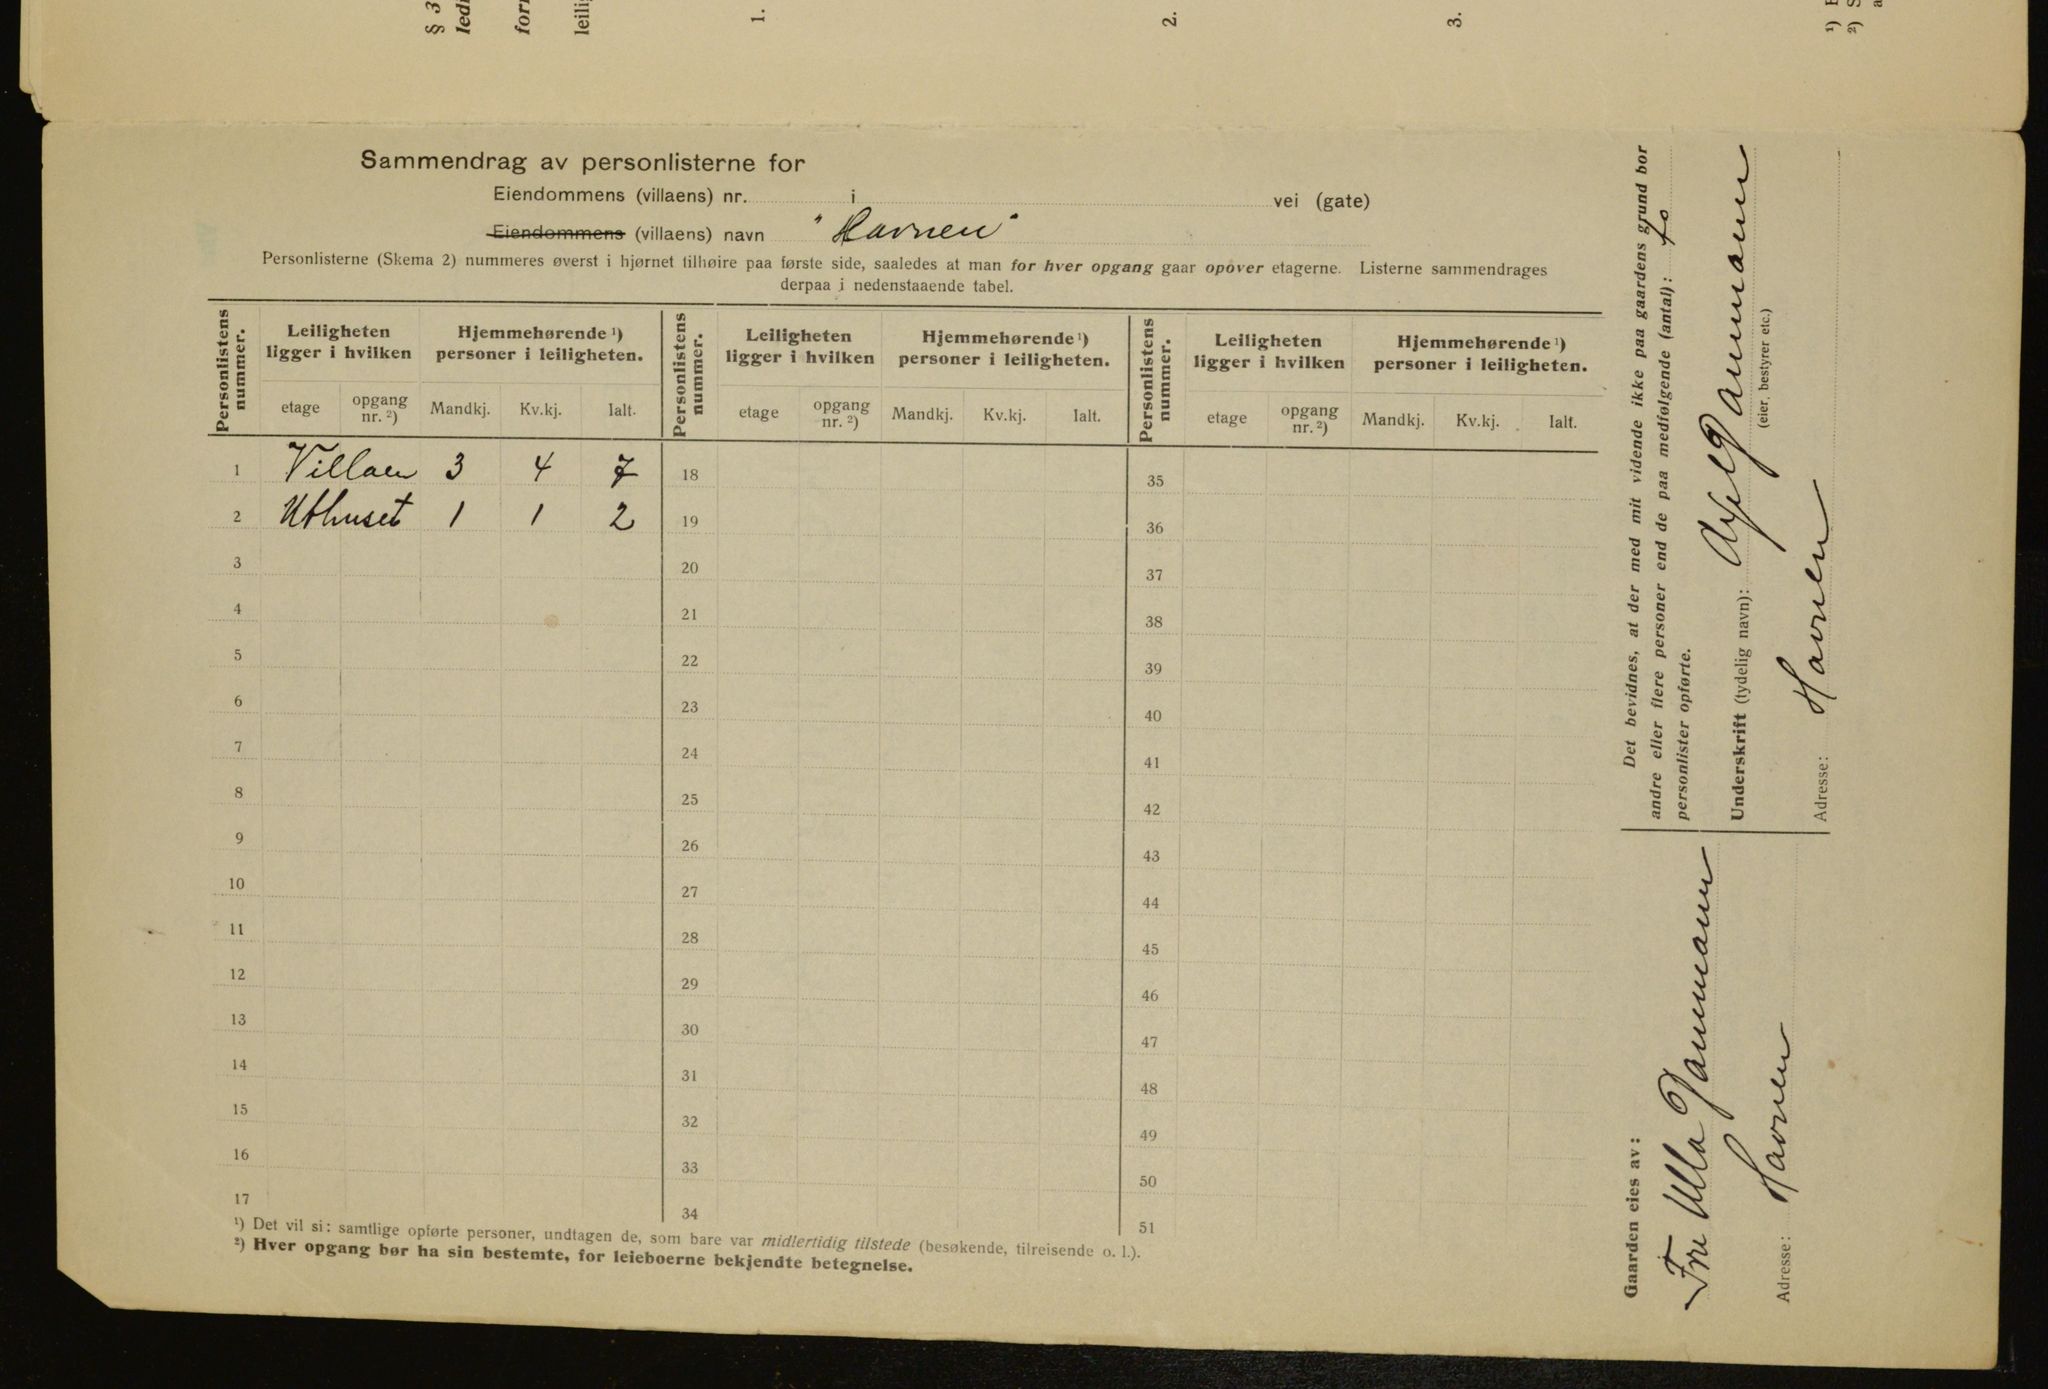 § 3
1.
2.
3.
¹)
²)
Sammendrag av personlisterne for
Eiendommens (villaens) nr. i vei (gate)
Eiendommens (villaens) navn "Havnen"
Personlisterne (Skema 2) nummeres øverst i hjørnet tilhøire paa første side, saaledes at man for hver opgang gaar opover etagerne. Listerne sammendrages
derpaa i nedenstaaende tabel.
Personlistens nummer. Leiligheten ligger i hvilken Hjemmehørende ¹) personer i leiligheten. Personlistens nummer. Leiligheten ligger i hvilken Hjemmehørende ¹) personer i leiligheten. Personlistens nummer. Leiligheten ligger i hvilken Hjemmehørende ¹) personer i leiligheten.
etage opgang nr. ²) Mandkj. Kv.kj. Ialt. etage opgang nr. ²) Mandkj. Kv.kj. Ialt. etage opgang nr. ²) Mandkj. Kv.kj. Ialt.
1 Villaen 3 4 7 18 35
2 Uthuset 1 1 2 19 36
3 20 37
4 21 38
5 22 39
6 23 40
7 24 41
8 25 42
9 26 43
10 27 44
11 28 45
12 29 46
13 30 47
14 31 48
15 32 49
16 33 50
17 34 51
¹) Det vil si: samtlige opførte personer, undtagen de, som bare var midlertidig tilstede (besøkende, tilreisende o. l.).
²) Hver opgang bør ha sin bestemte, for leieboerne bekjendte betegnelse.
Gaarden eies av:
Fru Ulla Pammann
Adresse: Havnen
Det bevidnes, at der med mit vidende ikke paa gaardens grund bor
andre eller flere personer end de paa medfølgende (antal): to
personlister opførte.
Underskrift (tydelig navn): Axel Pammann
(eier, bestyrer etc.)
Adresse: Havnen